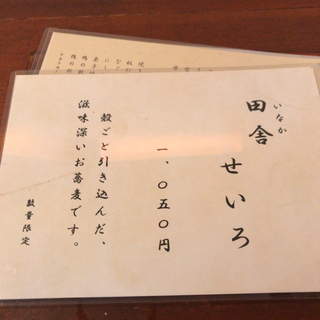 田舎 せいろ
いなか
一、〇五〇円
殻ごと引き込んだ、
滋味深いお蕎麦です。
数量限定